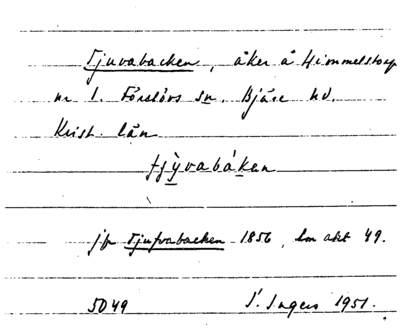 Tjuvabacken, åker å Himmelstorp
nr 1. Förslövs sn. Bjäre hd.
Krist. län
jfr Tjufvabacken 1856, Lm akt 49.
5049 I. Ingers 1951.